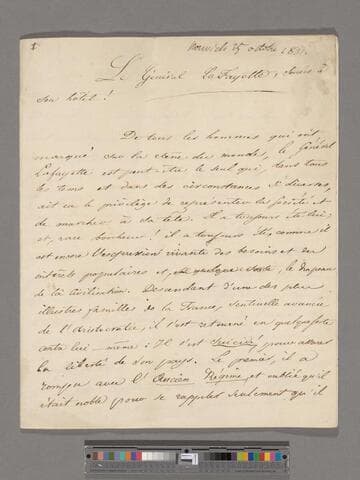 1.
25 octobre
Le Général LaFayette, Jamais à
son hôtel!
De tous les hommes qui ont
marqué sur la scène du monde, le Général
Lafayette est peut-être le seul qui, dans tous
les tems et dans des circonstances si diverses,
ait eu le privilège de représenter la société et
de marcher à sa tête. Il a toujours
et, rare bonheur! il a toujours été, comme il
est encore l'expression vivante des besoins et des
intérêts populaires et, en quelque sorte, le drapeau
de la civilisation. Descendant d'une des plus
illustres familles de la France, sentinelle avancée
de l'aristocratie, il s'est retourné en quelque sorte
contre lui-même: Il s'est suicidé, pour
la liberté de son pays. Le premier, il a
rompu avec l'Ancien Régime, et oublié qu'il
était noble pour se rappeler seulement qu'il